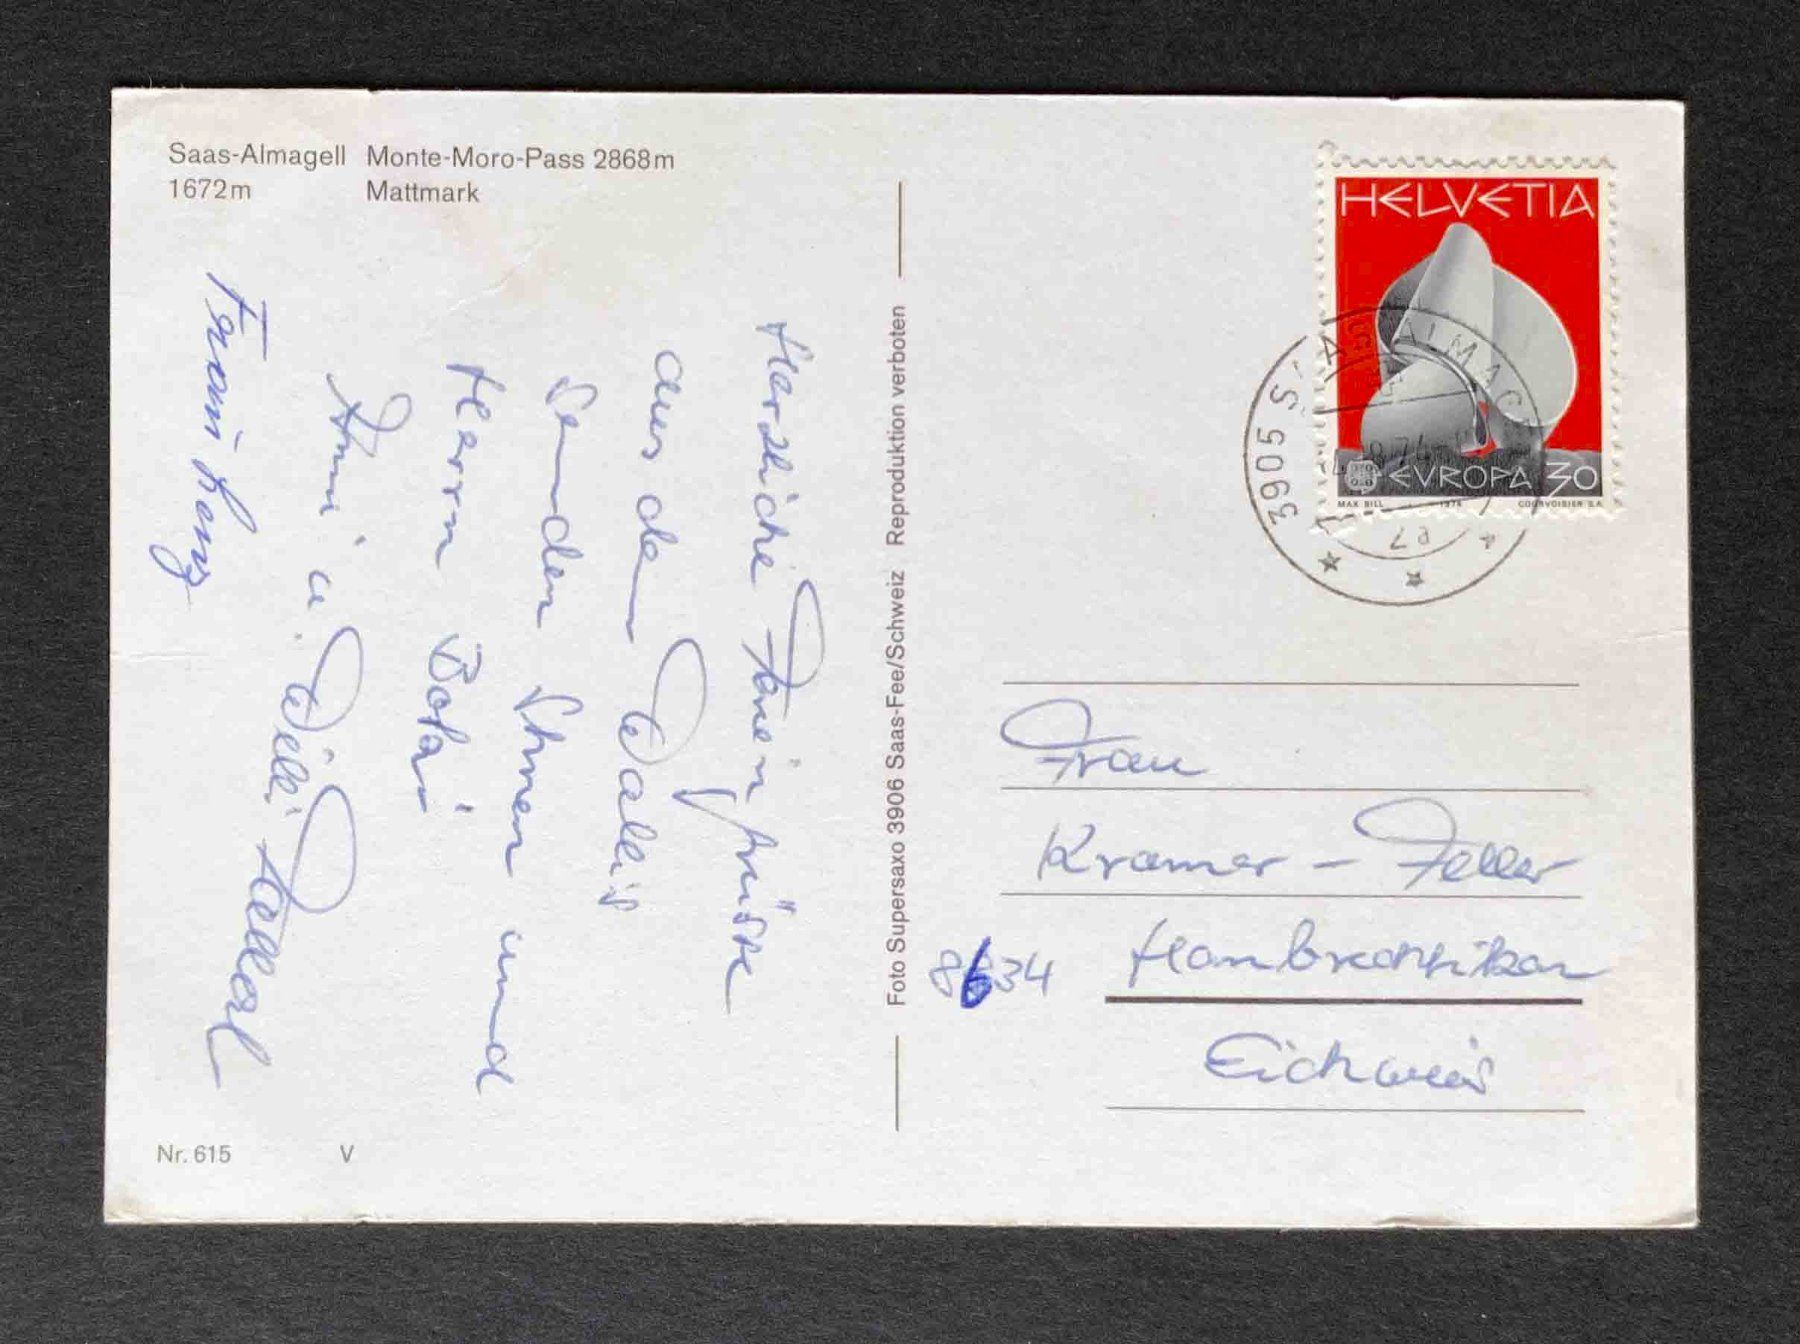 Saas-Almagell Monte-Moro-Pass 2868m
1672m Mattmark
Herzliche Feriengrüsse
aus dem Wallis
senden Ihnen und
Herrn
Anni u. Willi
Frau Lenz
Nr. 615 V
Foto Supersaxo 3906 Saas-Fee/Schweiz Reproduktion verboten
HELVETIA
EVROPA 30
MAX BILL 1974 COURVOISIER S.A.
3905 SAAS ALMAGELL
Frau
Kramer - Feller
8634 Hombrechtikon
Eichwies